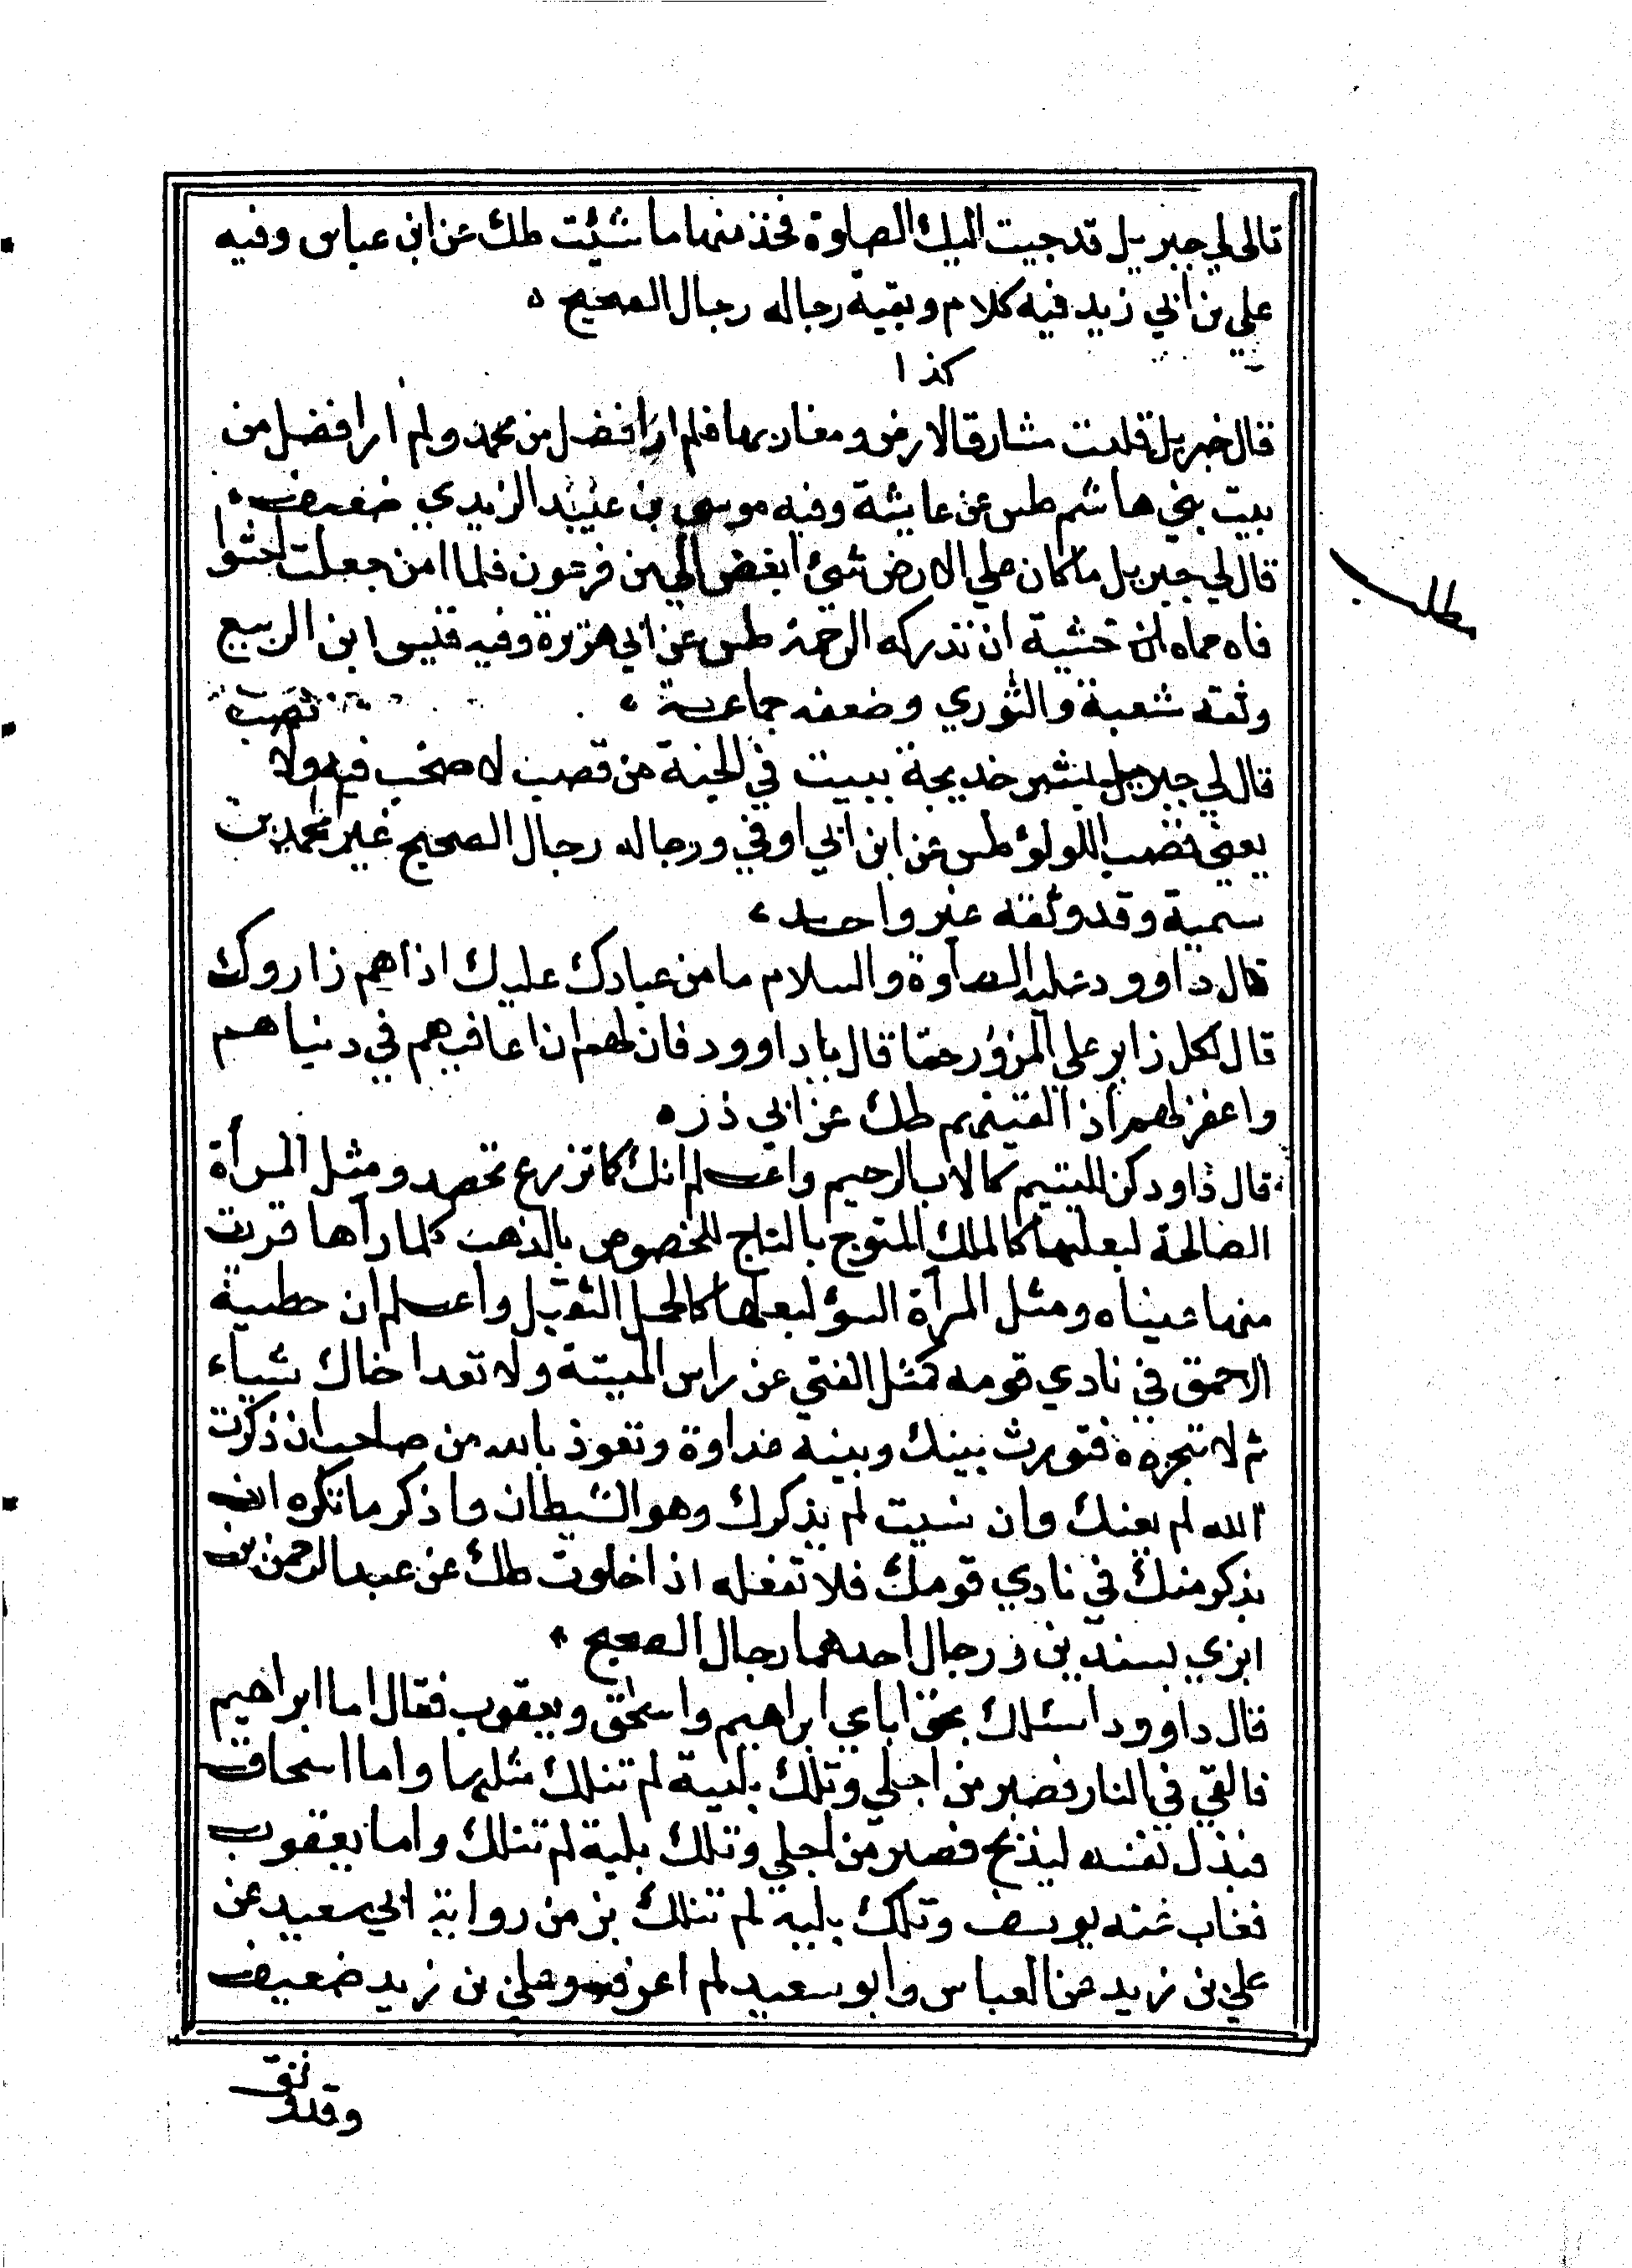 قال لي جبريل قد حببت اليك الصلوة فخذ منها ما شئت طك عن ابن عباس وفيه
علي بن ابي زيد فيه كلام وبقية رجاله رجال الصحيح
كذا
قال جبريل قلبت مشارق الارض ومغاربها فلم ار افضل من محمد ولم ار افضل من
بيت بني هاشم طس عن عايشة وفيه موسى بن عبيد الزيدي ضعيف
قال لي جبريل ما كان علي الارض شئ ابغض الي من فرعون فلما امن جعلت احثوا
فاه حماه خشية ان تدركه الرحمة طس عن ابي هريرة وفيه قيس ابن الربيع
وثقه شعبة والثوري وضعفه جماعة
نصب
قال لي جبريل بشر خديجة ببيت في الجنة من قصب لا صخب فيه ولا
يعني قصب اللولؤ طس عن ابن ابي اوفي ورجاله رجال الصحيح غير محمد بن
سمية وقد وثقه غير واحد
قال داوود عليه الصلوة والسلام ما من عبادك عليك اذا هم زاروك
قال لكل زاير علي المزور حقا قال يا داوود فان لهم ان اعافيهم في دنياهم
واغفر لهم اذا لقيتهم طك عن ابي ذر
قال داود كن لليتيم كالاب الرحيم واعلم انك كما تزرع تحصد ومثل المرأة
الصالحة لبعلها كالملك المتوج بالتاج المخصوص بالذهب كلما رآها قرت
منها عيناه ومثل المرأة السؤ لبعلها كالحمل الثقيل واعلم ان خطبة
الاحمق في نادي قومه كمثل المغني عن راس الميتة ولا تعد اخاك شياء
ثم لا تنجزه فتورث بينك وبينه عداوة وتعوذ بالله من صاحب ان ذكرت
الله لم يعنك وان نسيت لم يذكرك وهو الشيطان واذكر ما تكره ان
يذكر منك في نادي قومك فلا تفعله اذا خلوت طك عن عبد الرحمن بن
ابزي بسندين ورجال احدهما رجال الصحيح
قال داوود اسئلك بحق اباءي ابراهيم واسحق ويعقوب فقال اما ابراهيم
فالقي في النار فصبر من اجلي وتلك بلية لم تنلك مثلها واما اسحاق
فبذل نفسه ليذبح فصبر من اجلي وتلك بلية لم تنلك واما يعقوب
فغاب عنه يوسف وتلك بلية لم تنلك بز من رواية ابي سعيد عن
علي بن زيد عن العباس وابو سعيد لم اعرفه وعلي بن زيد ضعيف
وقد وثق
مطلب